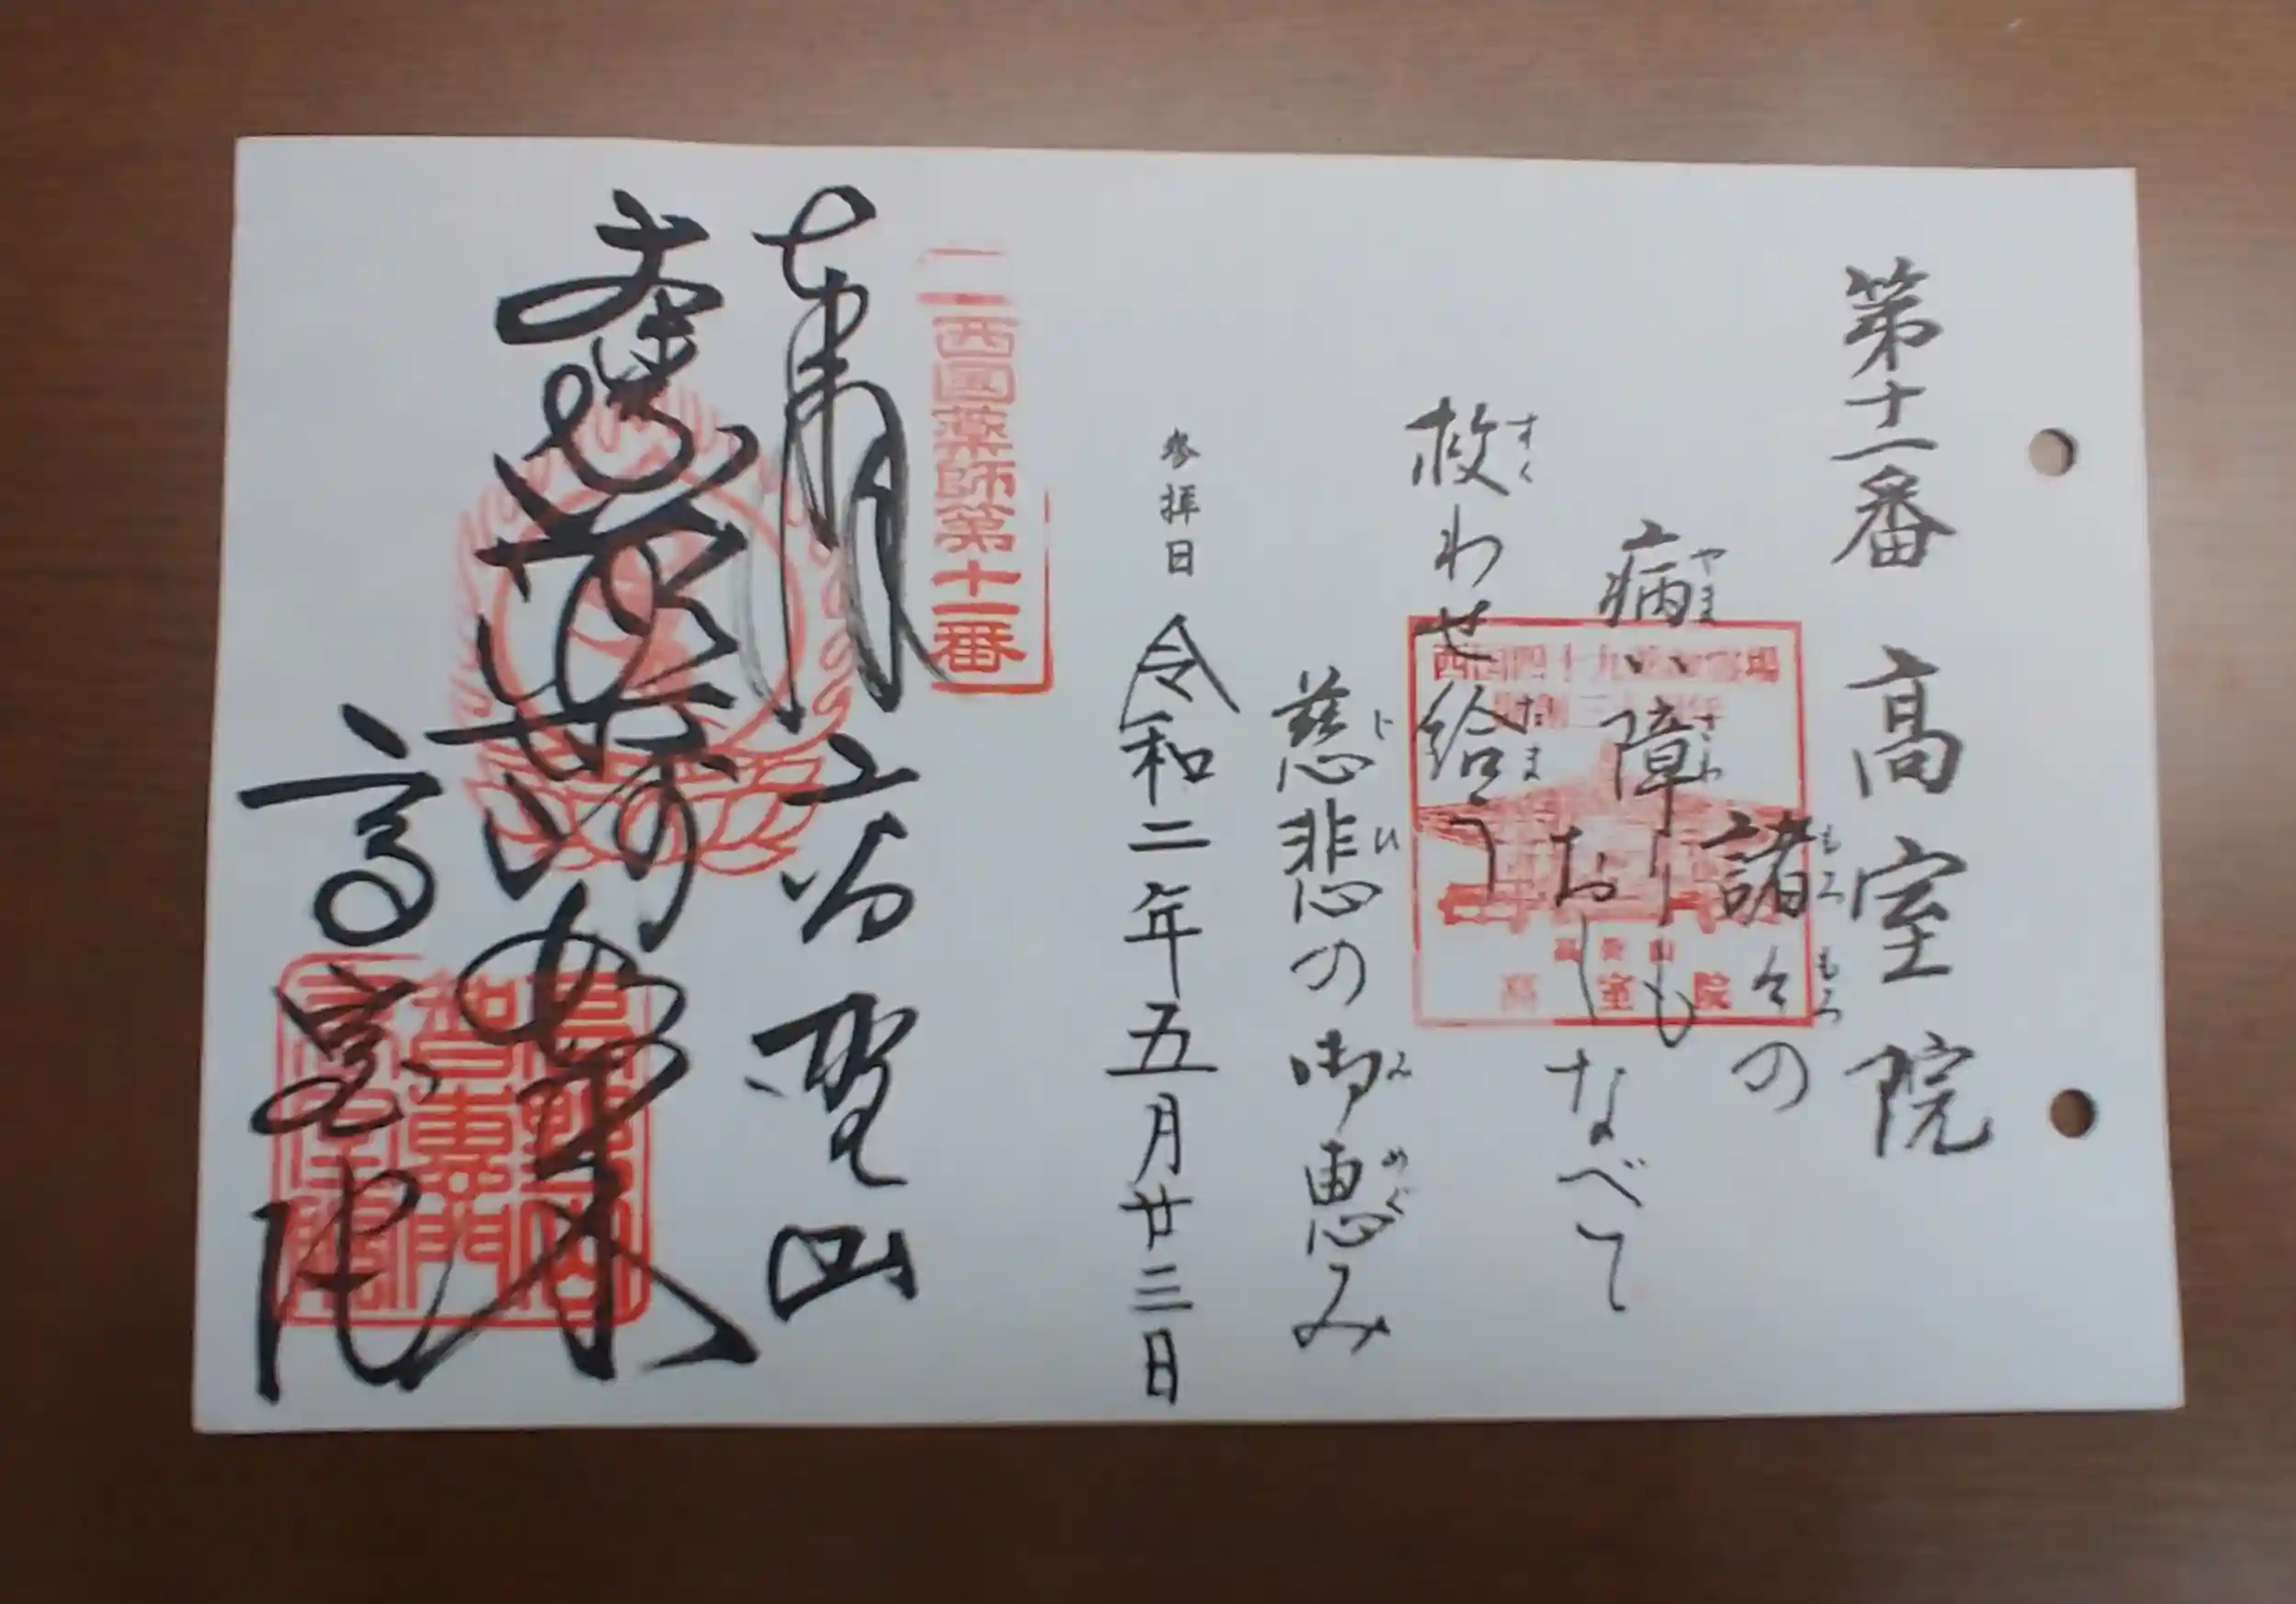 第十一番 高室院
諸々の
病い障りも
おしなべて
救わせ給う
慈悲の御恵み
参拝日 令和二年五月廿三日
西国薬師第十一番
奉拝 高野山
薬師如来
高室院
西国四十九薬師霊場
高野山
高室院